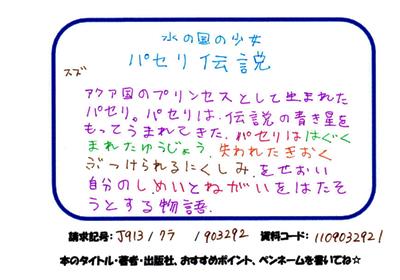 水の国の少女
パセリ伝説
スズ
アクア国のプリンセスとして生まれた
パセリ。パセリは、伝説の青き星を
もってうまれてきた。パセリははぐく
まれたゆうじょう、失われたきおく
ぶつけられるにくしみ、をせおい
自分のしめいとねがいをはたそ
うとする物語。
請求記号: J913 / クラ / 903292 資料コード: 1109032921
本のタイトル・著者・出版社、おすすめポイント、ペンネームを書いてね☆